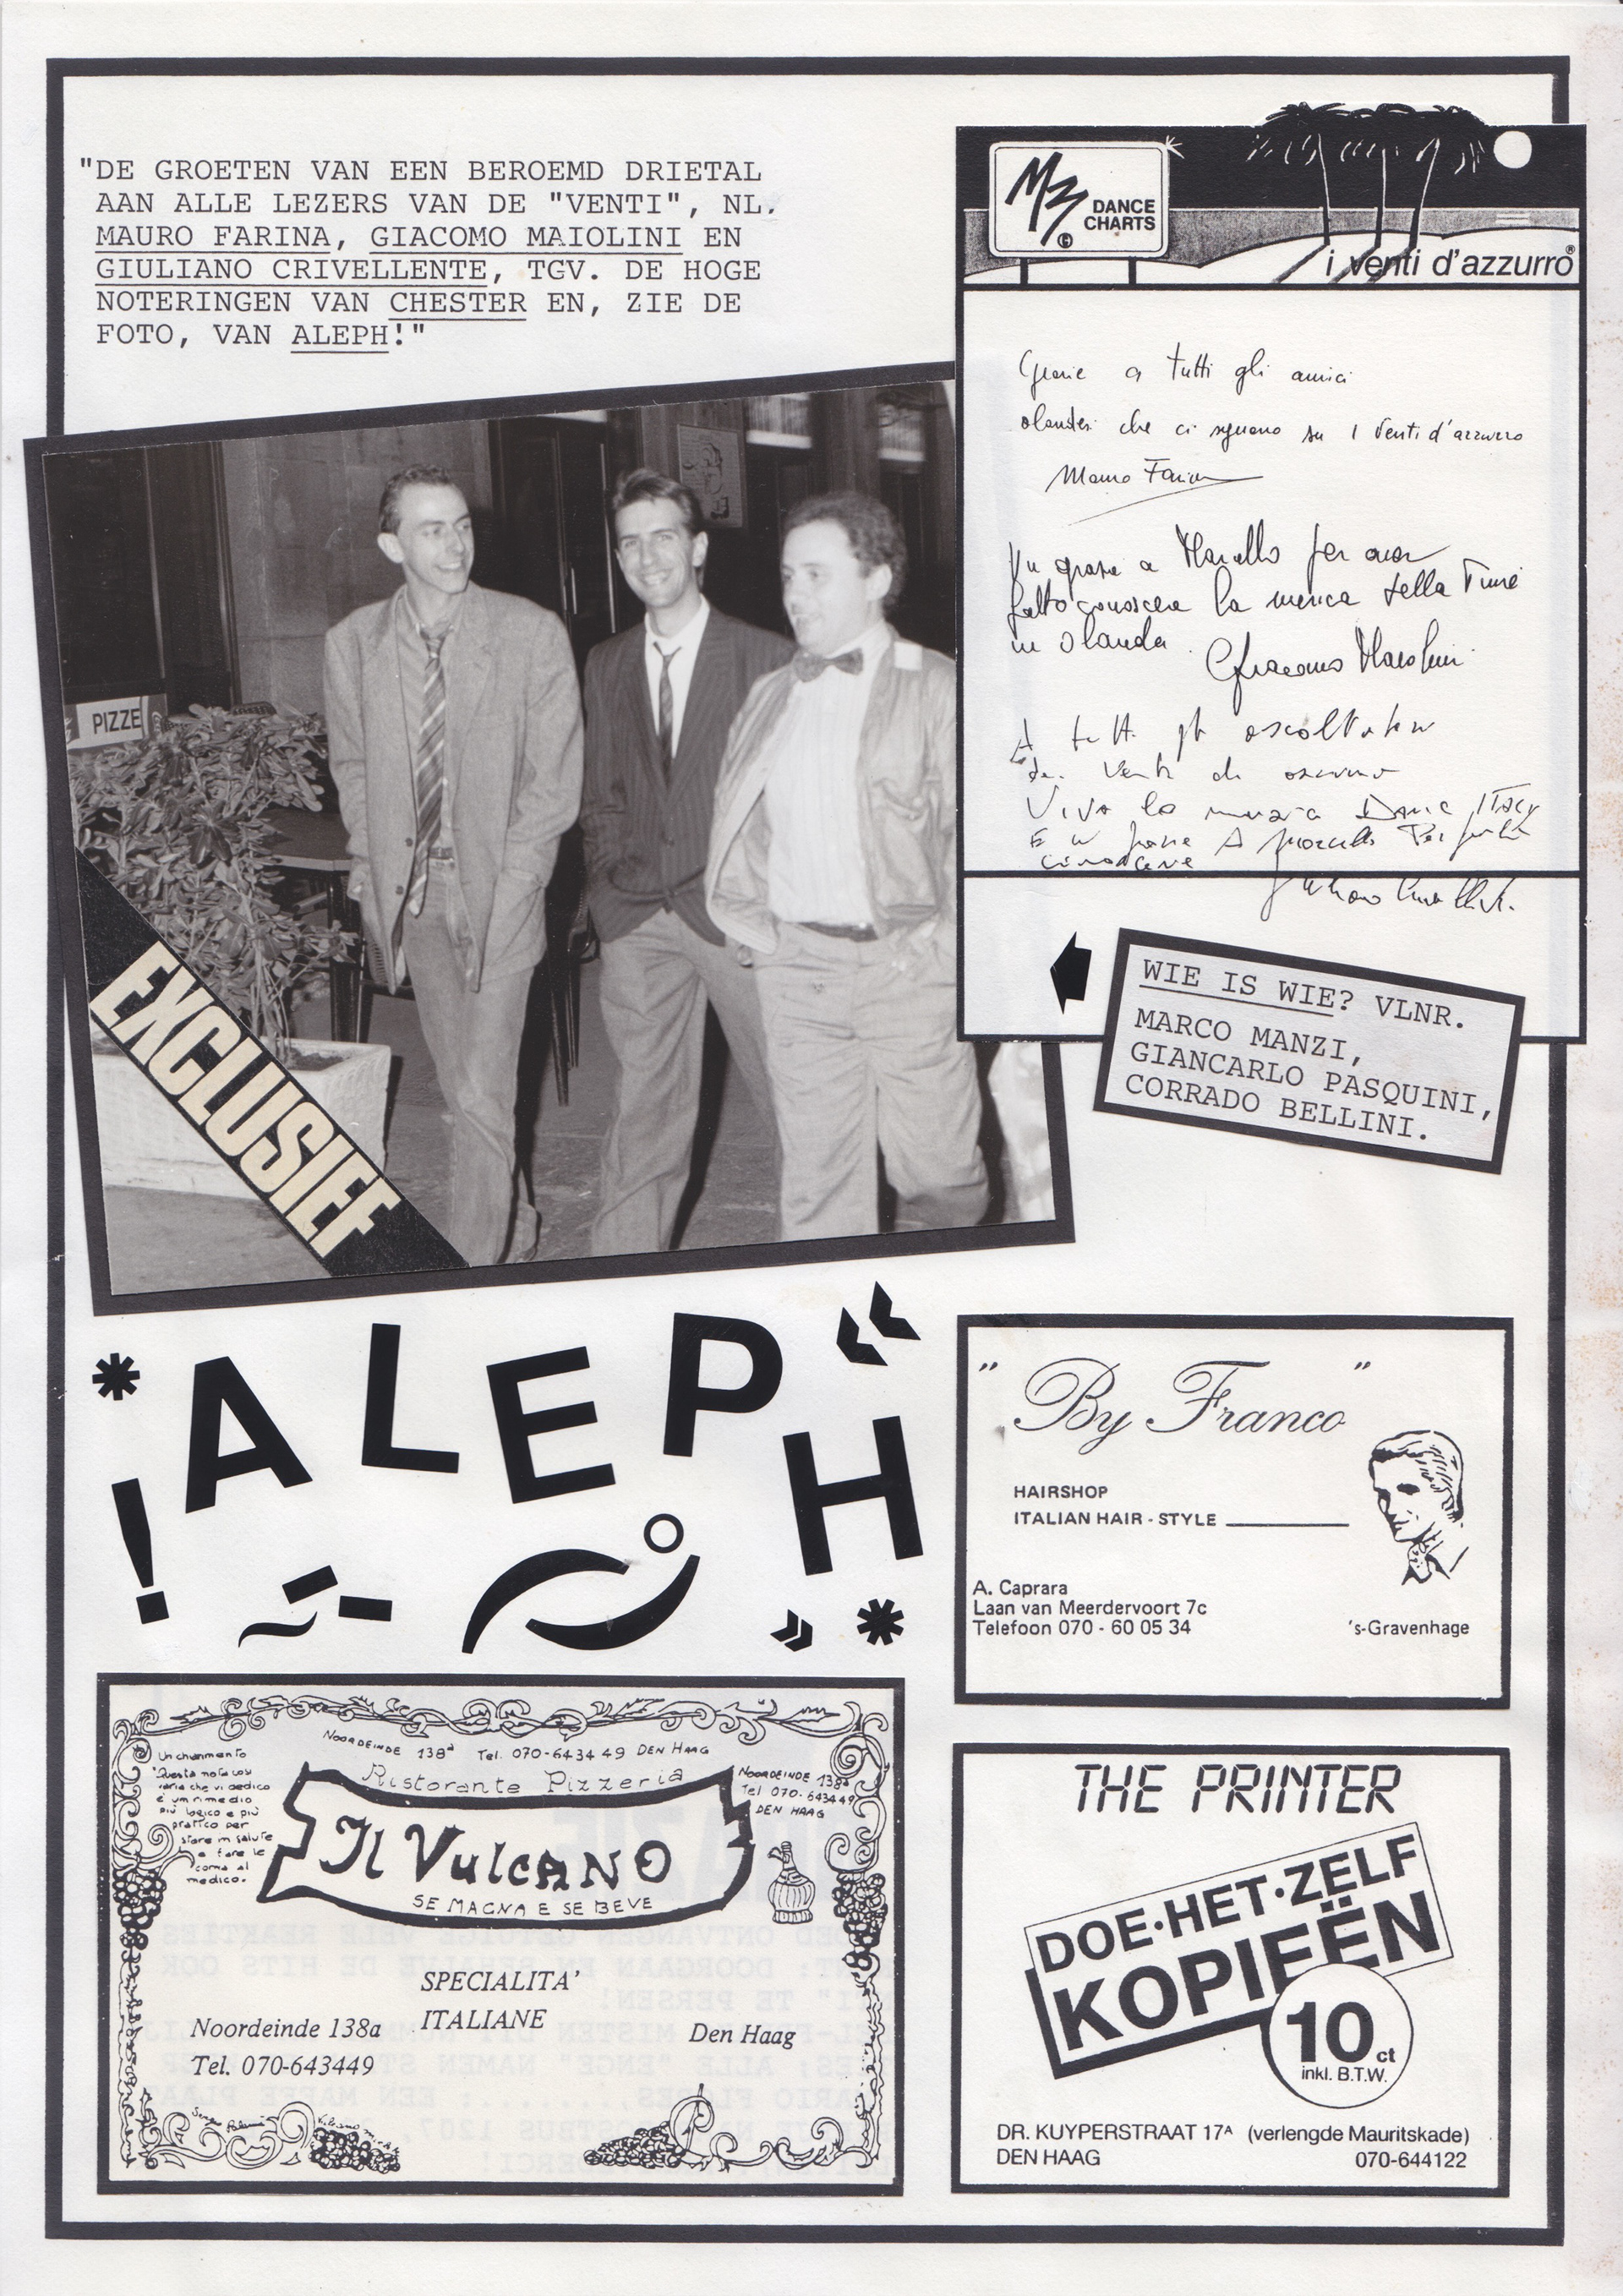 "DE GROETEN VAN EEN BEROEMD DRIETAL
AAN ALLE LEZERS VAN DE "VENTI", NL.
MAURO FARINA, GIACOMO MAIOLINI EN
GIULIANO CRIVELLENTE, TGV. DE HOGE
NOTERINGEN VAN CHESTER EN, ZIE DE
FOTO, VAN ALEPH!"
MZ DANCE
CHARTS
©
i venti d'azzurro®
Grazie a tutti gli amici
olandesi che ci seguono su I Venti d'azzurro
Mauro Farina
Un grazie a Marcello per aver
fatto conoscere la musica della Time
in Olanda
Giacomo Maiolini
A tutti gli ascoltatori
dei Venti di
Viva la musica Dance ITALY
E un grazie A
PIZZE
EXCLUSIEF
WIE IS WIE? VLNR.
MARCO MANZI,
GIANCARLO PASQUINI,
CORRADO BELLINI.
* ALEPH «
! » *
"By Franco"
HAIRSHOP
ITALIAN HAIR - STYLE
A. Caprara
Laan van Meerdervoort 7c
Telefoon 070 - 60 05 34
's-Gravenhage
NOORDEINDE 138a Tel. 070-643449 DEN HAAG
Ristorante Pizzeria
Il Vulcano
SE MAGNA E SE BEVE
NOORDEINDE 138a
Tel 070-643449
DEN HAAG
più logico e più
pratico per
stare in salute
e fare le
corna al
medico.
SPECIALITA'
ITALIANE
Noordeinde 138a
Tel. 070-643449
Den Haag
THE PRINTER
DOE·HET·ZELF
KOPIEËN
10 ct
inkl. B.T.W.
DR. KUYPERSTRAAT 17A (verlengde Mauritskade)
DEN HAAG 070-644122